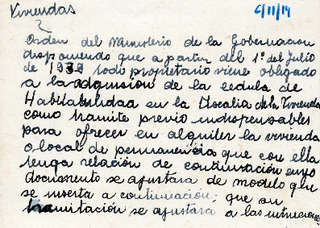 Viviendas 6/11/14
Orden del Ministerio de la Gobernacion
disponiendo que a partir del 1º de Julio
de 1939 todo propietario viene obligado
a la adquision de la cedula de
Habitabilidad en la Fiscalia de la Vivienda
como tramite previo indispensables
para ofrecer en alquiler la vivienda
o local de permanencia que con ella
tenga relación de continuación cuyo
documento se ajustara de modelo que
se inserta a continuación, que su
tramitación se ajustara a las instrucciones